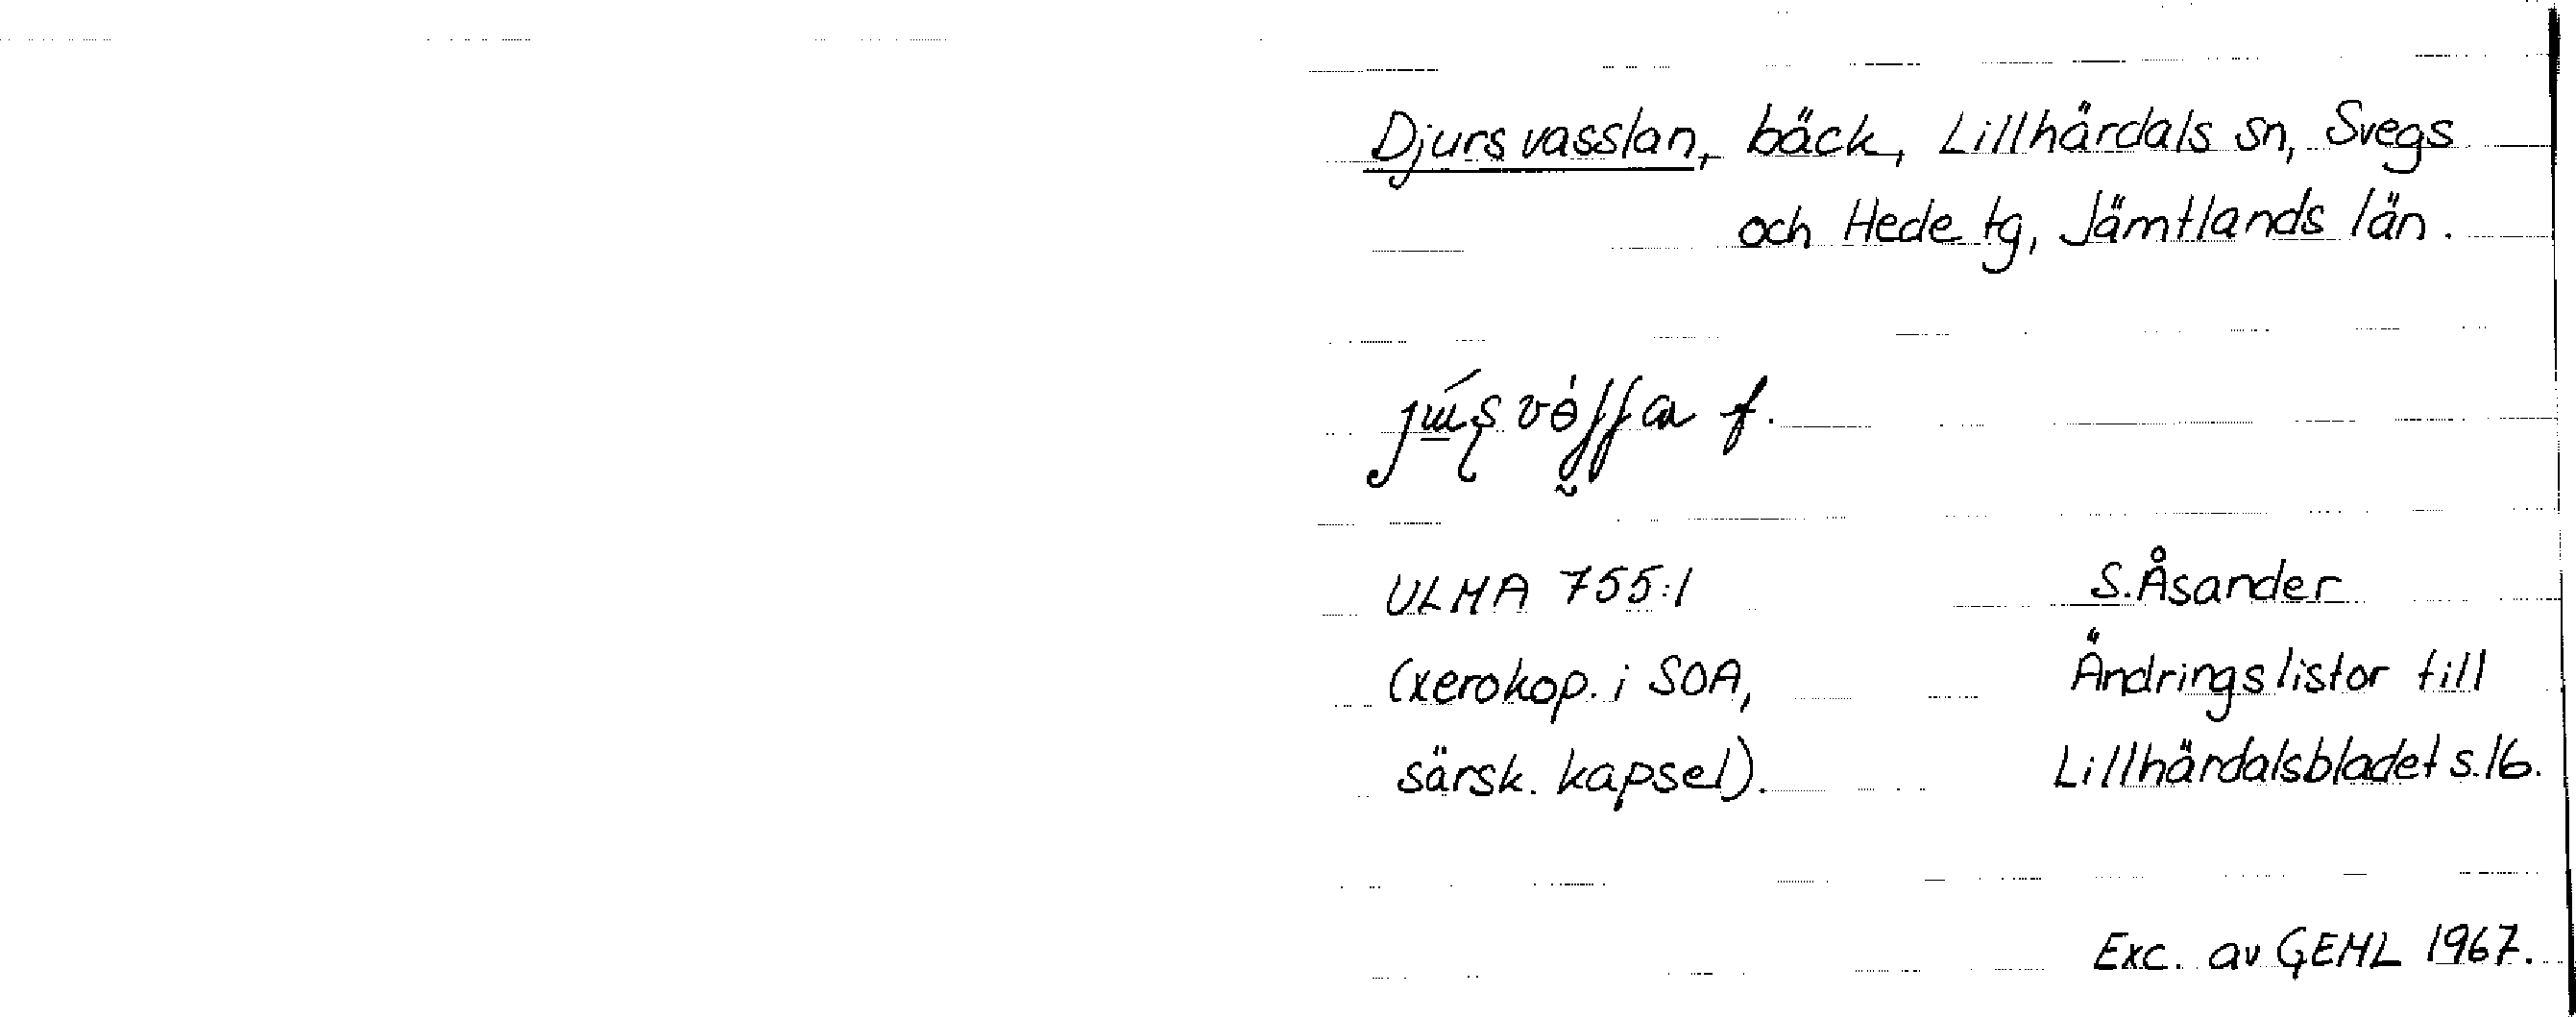 Djursvasslan, bäck, Lillhärdals sn, Svegs
och Hede tg, Jämtlands län.
f.
ULMA 755:1
S. Åsander
(xerokop. i SOA,
Ändringslistor till
särsk. kapsel).
Lillhärdalsbladet s.16.
Exc. av GEHL 1967.